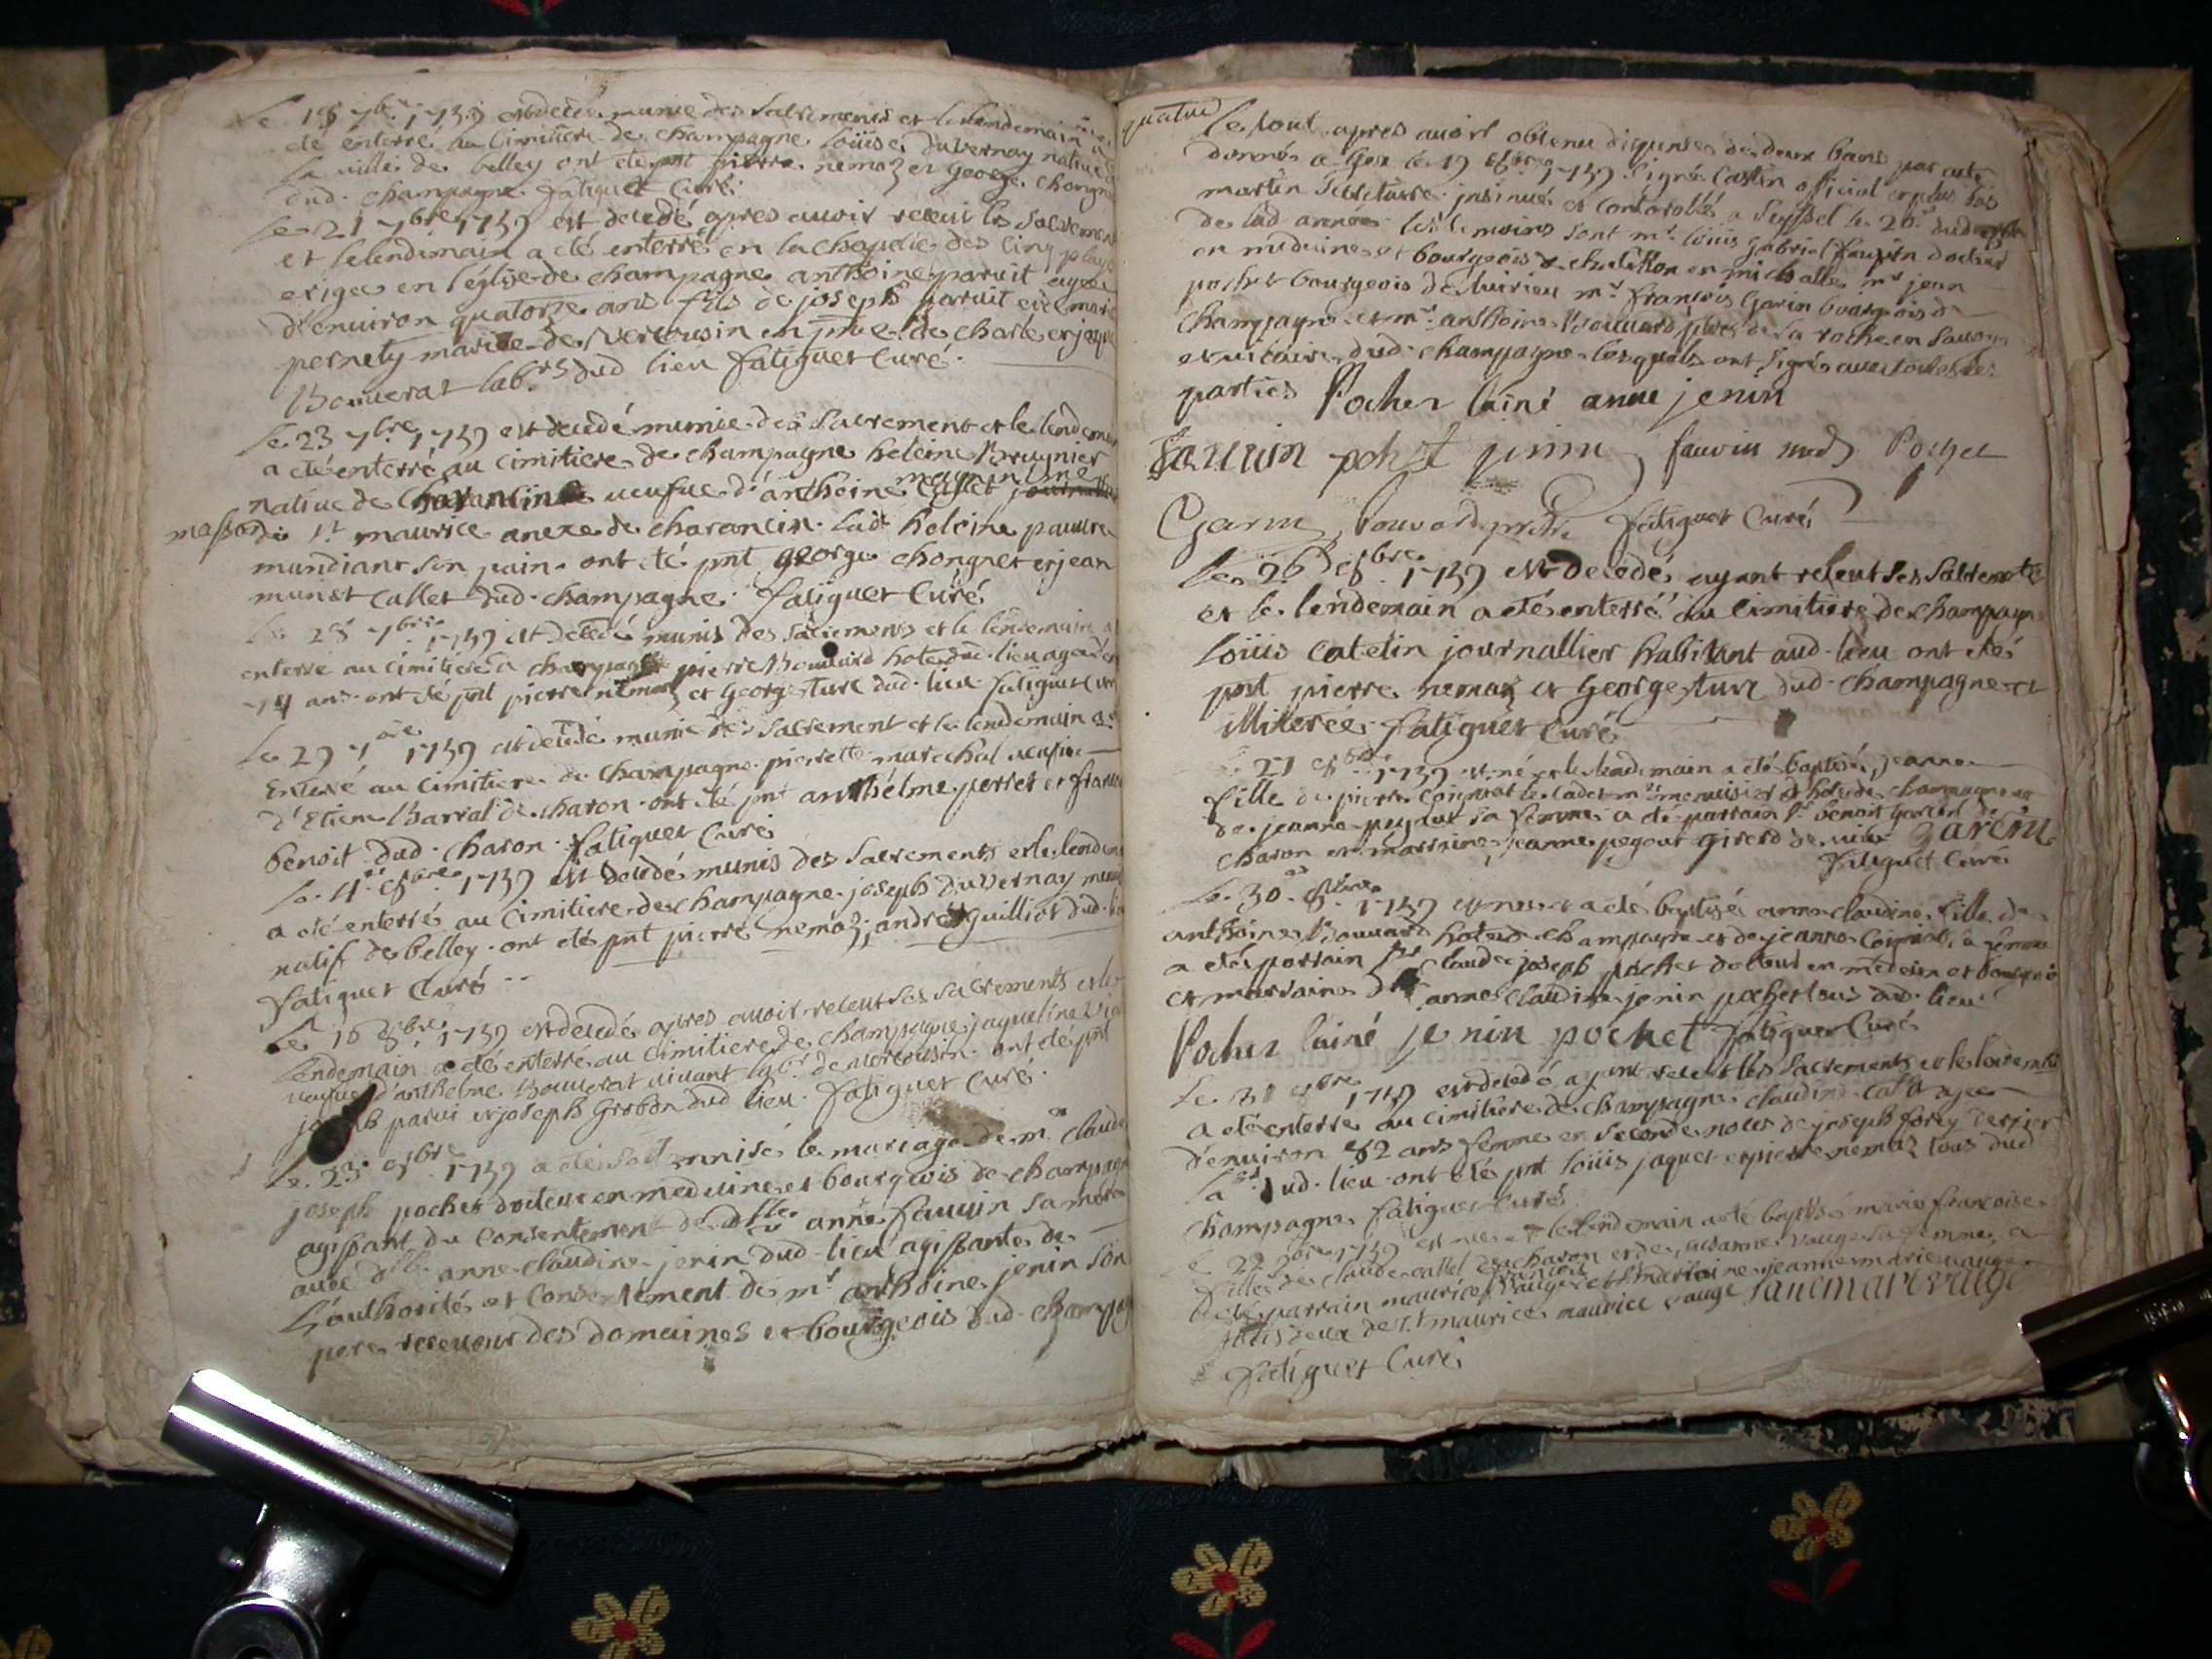 Le 18 7bre 1739 est decedée munie des Sacrements et le lendemain a
eté enterré au Cimitiere de champagne loüise duvernay native de
la ville de belley ont eté pnt pierre nemoz et george chongnet
dud. champagne fatiguet Curé
Le 21 7bre 1739 est decedé apres avoir receut les Sacrements
et le lendemain a eté enterré en la chapelle des cinq playes
erigée en l'église de champagne anthoine paruit agée
d'environ quatorze ans fils de joseph paruit et de marie
pernety marié de vercousin en pnce de charle et jaque
Bouverat labrs dud lieu fatiguet Curé.
Le 23 7bre 1739 est decedé munie des Sacrement et le lendemain
a eté enterré au cimitiere de champagne heleine Brugnier
native de Charancin veufue d'anthoine Callet
masson de st maurice anexe de charancin. lad heleine pauvre
mandiant son pain. ont eté pnt george chongnet et jean
callet dud. champagne. fatiguet Curé
Le 28 7bre 1739 est decedé munis des Sacrements et le lendemain a
enterré au cimitiere a champagne pierre Bouvard hote dud. lieu agé de
74 ans. ont eté pnt pierre nemoz et george ture dud. lieu fatiguet Curé
Le 29 7bre 1739 est decedé munie des Sacrement et le lendemain a eté
Enterré au Cimitiere de champagne pierrette marechal veufue
d'Etiene Barral de charon. ont eté pnt anthélme perret et francois
benoit dud. charon. fatiguet Curé
Le 4e 8bre 1739 est decedé munis des Sacrements et le lendemain
a eté enterré au Cimitiere de champagne joseph duvernay
natif de belley. ont eté pnt pierre nemoz, andré guilliot dud. lieu
fatiguet Curé
Le 16 8bre 1739 est decedé apres avoir receut ses sacrements et le
lendemain a eté enterré au cimitiere de champagne jaqueline
veufue d'anthelme Bouverat vivant labr. de vercousin. ont eté pnt
joseph parui et joseph Grobon dud lieu. fatiguet Curé.
Le 23e 8bre 1739 a eté solemnisé le mariage de mr claude
joseph pochet docteur en medecine et bourgeois de champagne
agissant du Consentement de dlle anne fauvin sa mere
avec dlle anne claudine jenin dud. lieu agissante de
L'authorité et Consentement de mr anthoine jenin son
pere receveur des domaines et bourgeois dud. champagne
quatud
Le tout apres avoir obtenu dispense de deux bans par acte
donné a Gex le 19 8bre 1739 signé Castin official et plus bas
martin Secretaire. insinué et Contorollé a Seyssel le 20e dud
de lad année les temoins sont mr loüis gabriel fauvin docteur
en medecine et bourgeois de chatillon en michaille, mr jean
pochet bourgeois de luirieu mr francois Garin bourgeois de
Champagne et mr. anthoine Bouvard pbre de la roche en Savoye
et vicaire dud. champagne lesquels ont signé avec toutes les
parties Pochet lainé anne jenin
Fauvin pochet jenin fauvin med Pochet
Garin, Bouvard prtre fatiguet Curé
Le 26 8bre 1739 est decedé ayant receut ses Sacrements
et le lendemain a eté enterré au Cimitiere de champagne
loüis catelin journallier habitant aud. lieu ont eté
pnt pierre nemoz et George ture dud. champagne et
illiteree. fatiguet Curé
27 8bre 1739 est né et le lendemain a eté baptisée, jeanne
fille de pierre Coignat le cadet mtre menuisier et hote de champagne et
de jeanne pegout sa femme a eté parrain sr benoit Garin de
charon et marraine jeanne pegout girerd de Garin
fatiguet Curé
Le 30e 8bre 1739 est nee et a eté baptisée anne claudine fille de
anthoine Bouvard hote de champagne et de jeanne Coignat sa femme
a eté parrain sr claude joseph pochet docteur en medecin et bourgeois
et marraine dlle anne claudine jenin pochet tous dud. lieu
Pochet lainé jenin pochet fatiguet Curé
Le 31 8bre 1739 est decedé ayant receut les Sacrements et le lendemain
a eté enterré au cimitiere de champagne claudine agee
d'environ 82 ans femme en seconde noces de joseph forey
dud. lieu ont eté pnt loüis jaquet et pierre nemoz tous dud
champagne fatiguet Curé
Le 22 9bre 1739 est nee et le lendemain a eté baptisé marie francoise
fille de claude callet de charon et de susanne vauge sa femme, a
eté parrain maurice francois vauge et marraine jeanne marie vauge
tous deux de st maurice maurice vauge janemarivauge
fatiguet Curé